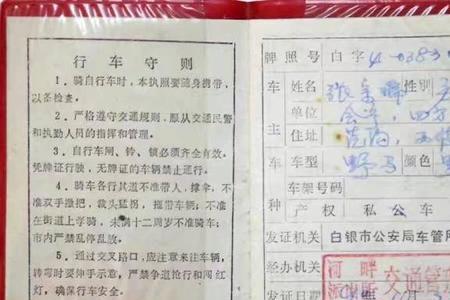 行车守则
1．骑自行车时，本执照要随身携带，
以备检查。
2．严格遵守交通规则，服从交通民警
和执勤人员的指挥和管理。
3．自行车闸、铃、锁必须齐全有效。
凭牌证行驶，无牌证的车辆禁止通行。
4．骑车各行其道不准带人，撑伞，不
准双手撒把，截头猛拐，拖带车辆；不准
在街道上学骑，未满十二周岁不准骑车；
市内严禁乱停乱放。
5．通过交叉路口，应注意来往车辆，
转弯时要伸手示意，严禁争道抢行和闯红
灯，确保行车安全。
牌照号 白字 4-0383
车 姓名 张 性别
单位 会
主 住址
车 车型 野马 颜色
车架号码
种 产权 私 公 车
发证机关 白银市公安局车管所
经办机关 河畔 交通管
派出所